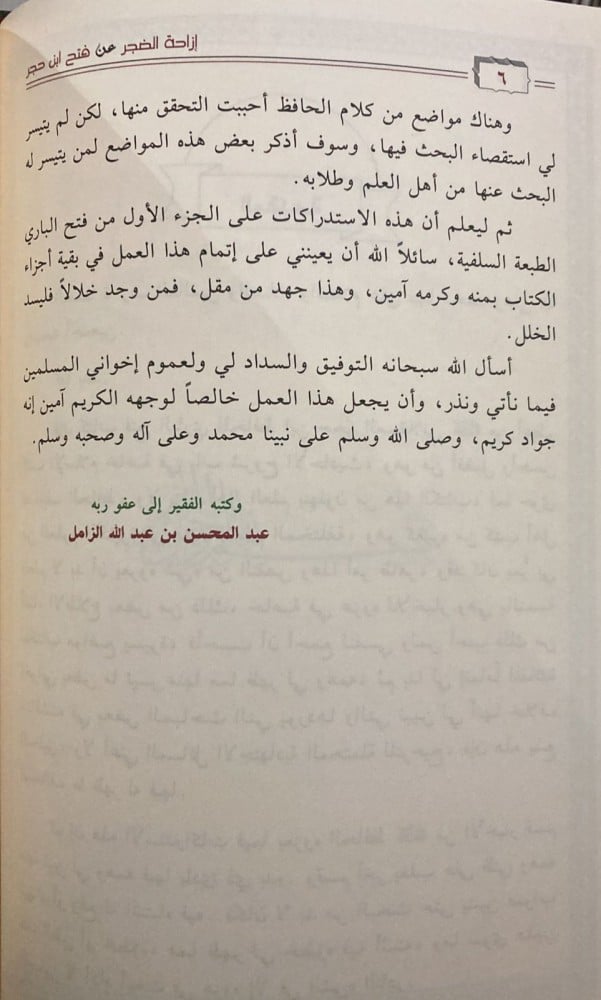 إزاحة الضجر عن فتح ابن حجر
٦
وهناك مواضع من كلام الحافظ أحببت التحقق منها، لكن لم يتيسر
لي استقصاء البحث فيها، وسوف أذكر بعض هذه المواضع لمن يتيسر له
البحث عنها من أهل العلم وطلابه.
ثم ليعلم أن هذه الاستدراكات على الجزء الأول من فتح الباري
الطبعة السلفية، سائلاً الله أن يعينني على إتمام هذا العمل في بقية أجزاء
الكتاب بمنه وكرمه آمين، وهذا جهد من مقل، فمن وجد خلالاً فليسد
الخلل.
أسأل الله سبحانه التوفيق والسداد لي ولعموم إخواني المسلمين
فيما نأتي ونذر، وأن يجعل هذا العمل خالصاً لوجهه الكريم آمين إنه
جواد كريم، وصلى الله وسلم على نبينا محمد وعلى آله وصحبه وسلم.
وكتبه الفقير إلى عفو ربه
عبد المحسن بن عبد الله الزامل